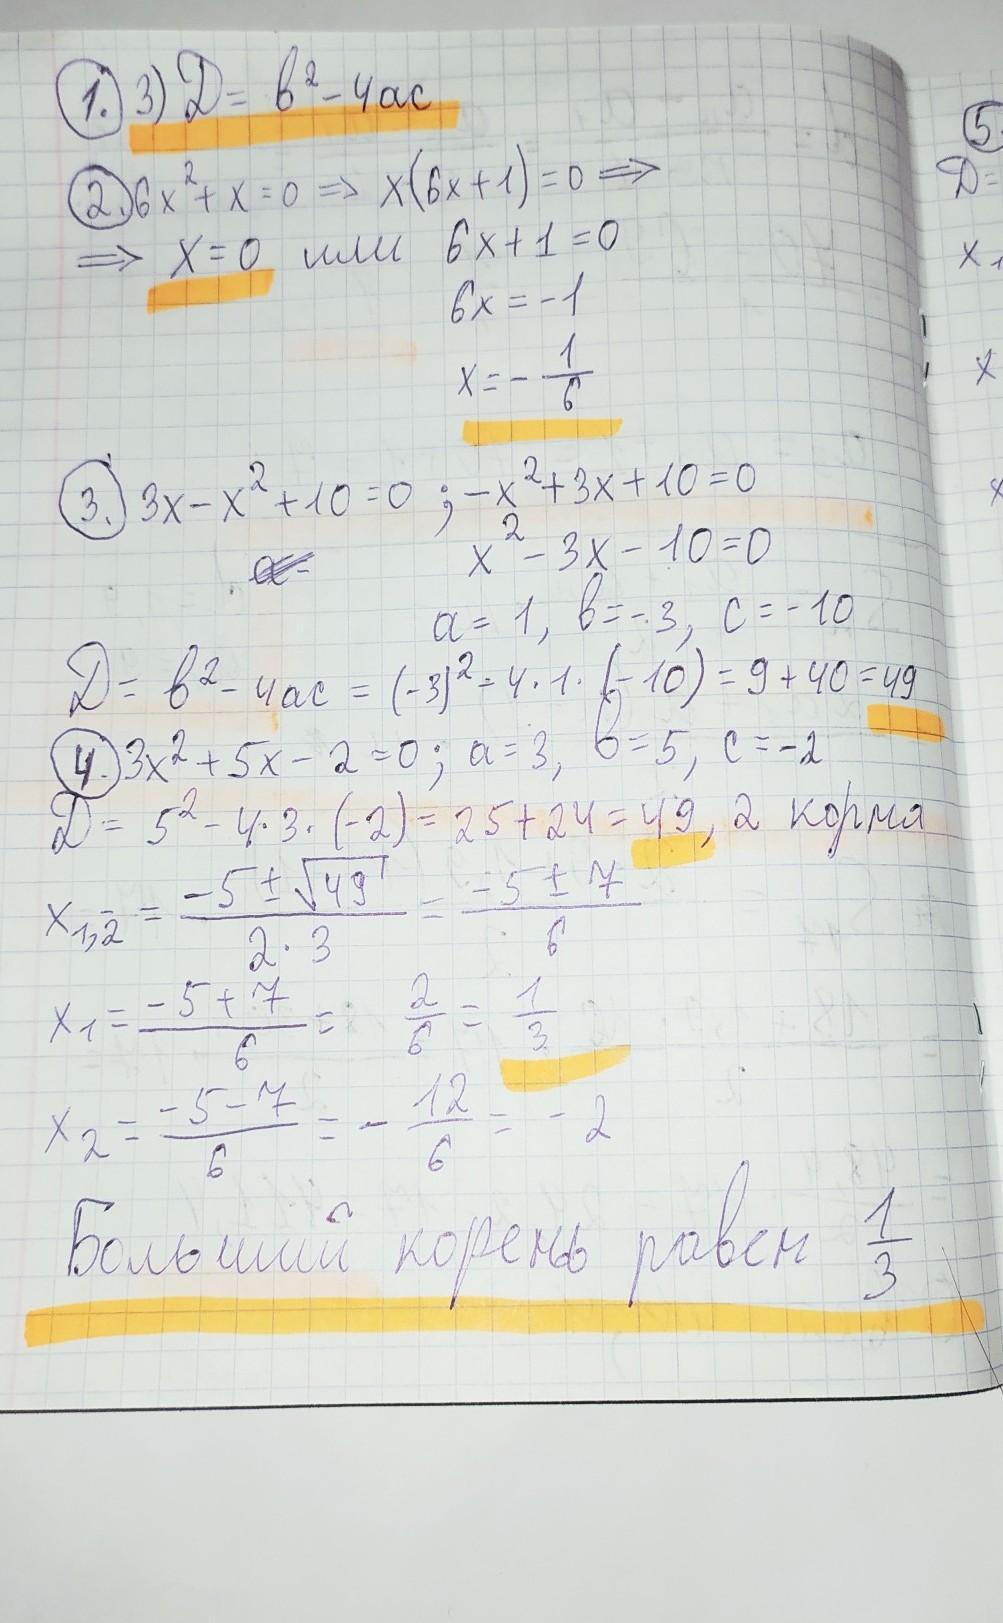 1. 3) D = b² - 4ac
2. 6x² + x = 0 => x(6x+1) = 0 =>
=> x = 0 или 6x+1 = 0
6x = -1
x = - 1/6
3. 3x - x² + 10 = 0 ; -x² + 3x + 10 = 0
x² - 3x - 10 = 0
a = 1, b = -3, c = -10
D = b² - 4ac = (-3)² - 4·1·(-10) = 9 + 40 = 49
4. 3x² + 5x - 2 = 0; a = 3, b = 5, c = -2
D = 5² - 4·3·(-2) = 25 + 24 = 49, 2 корня
x1,2 = (-5 ± √49)/(2·3) = (-5 ± 7)/6
x1 = (-5 + 7)/6 = 2/6 = 1/3
x2 = (-5 - 7)/6 = - 12/6 = - 2
Больший корень равен 1/3
5
D =
x1
x
x